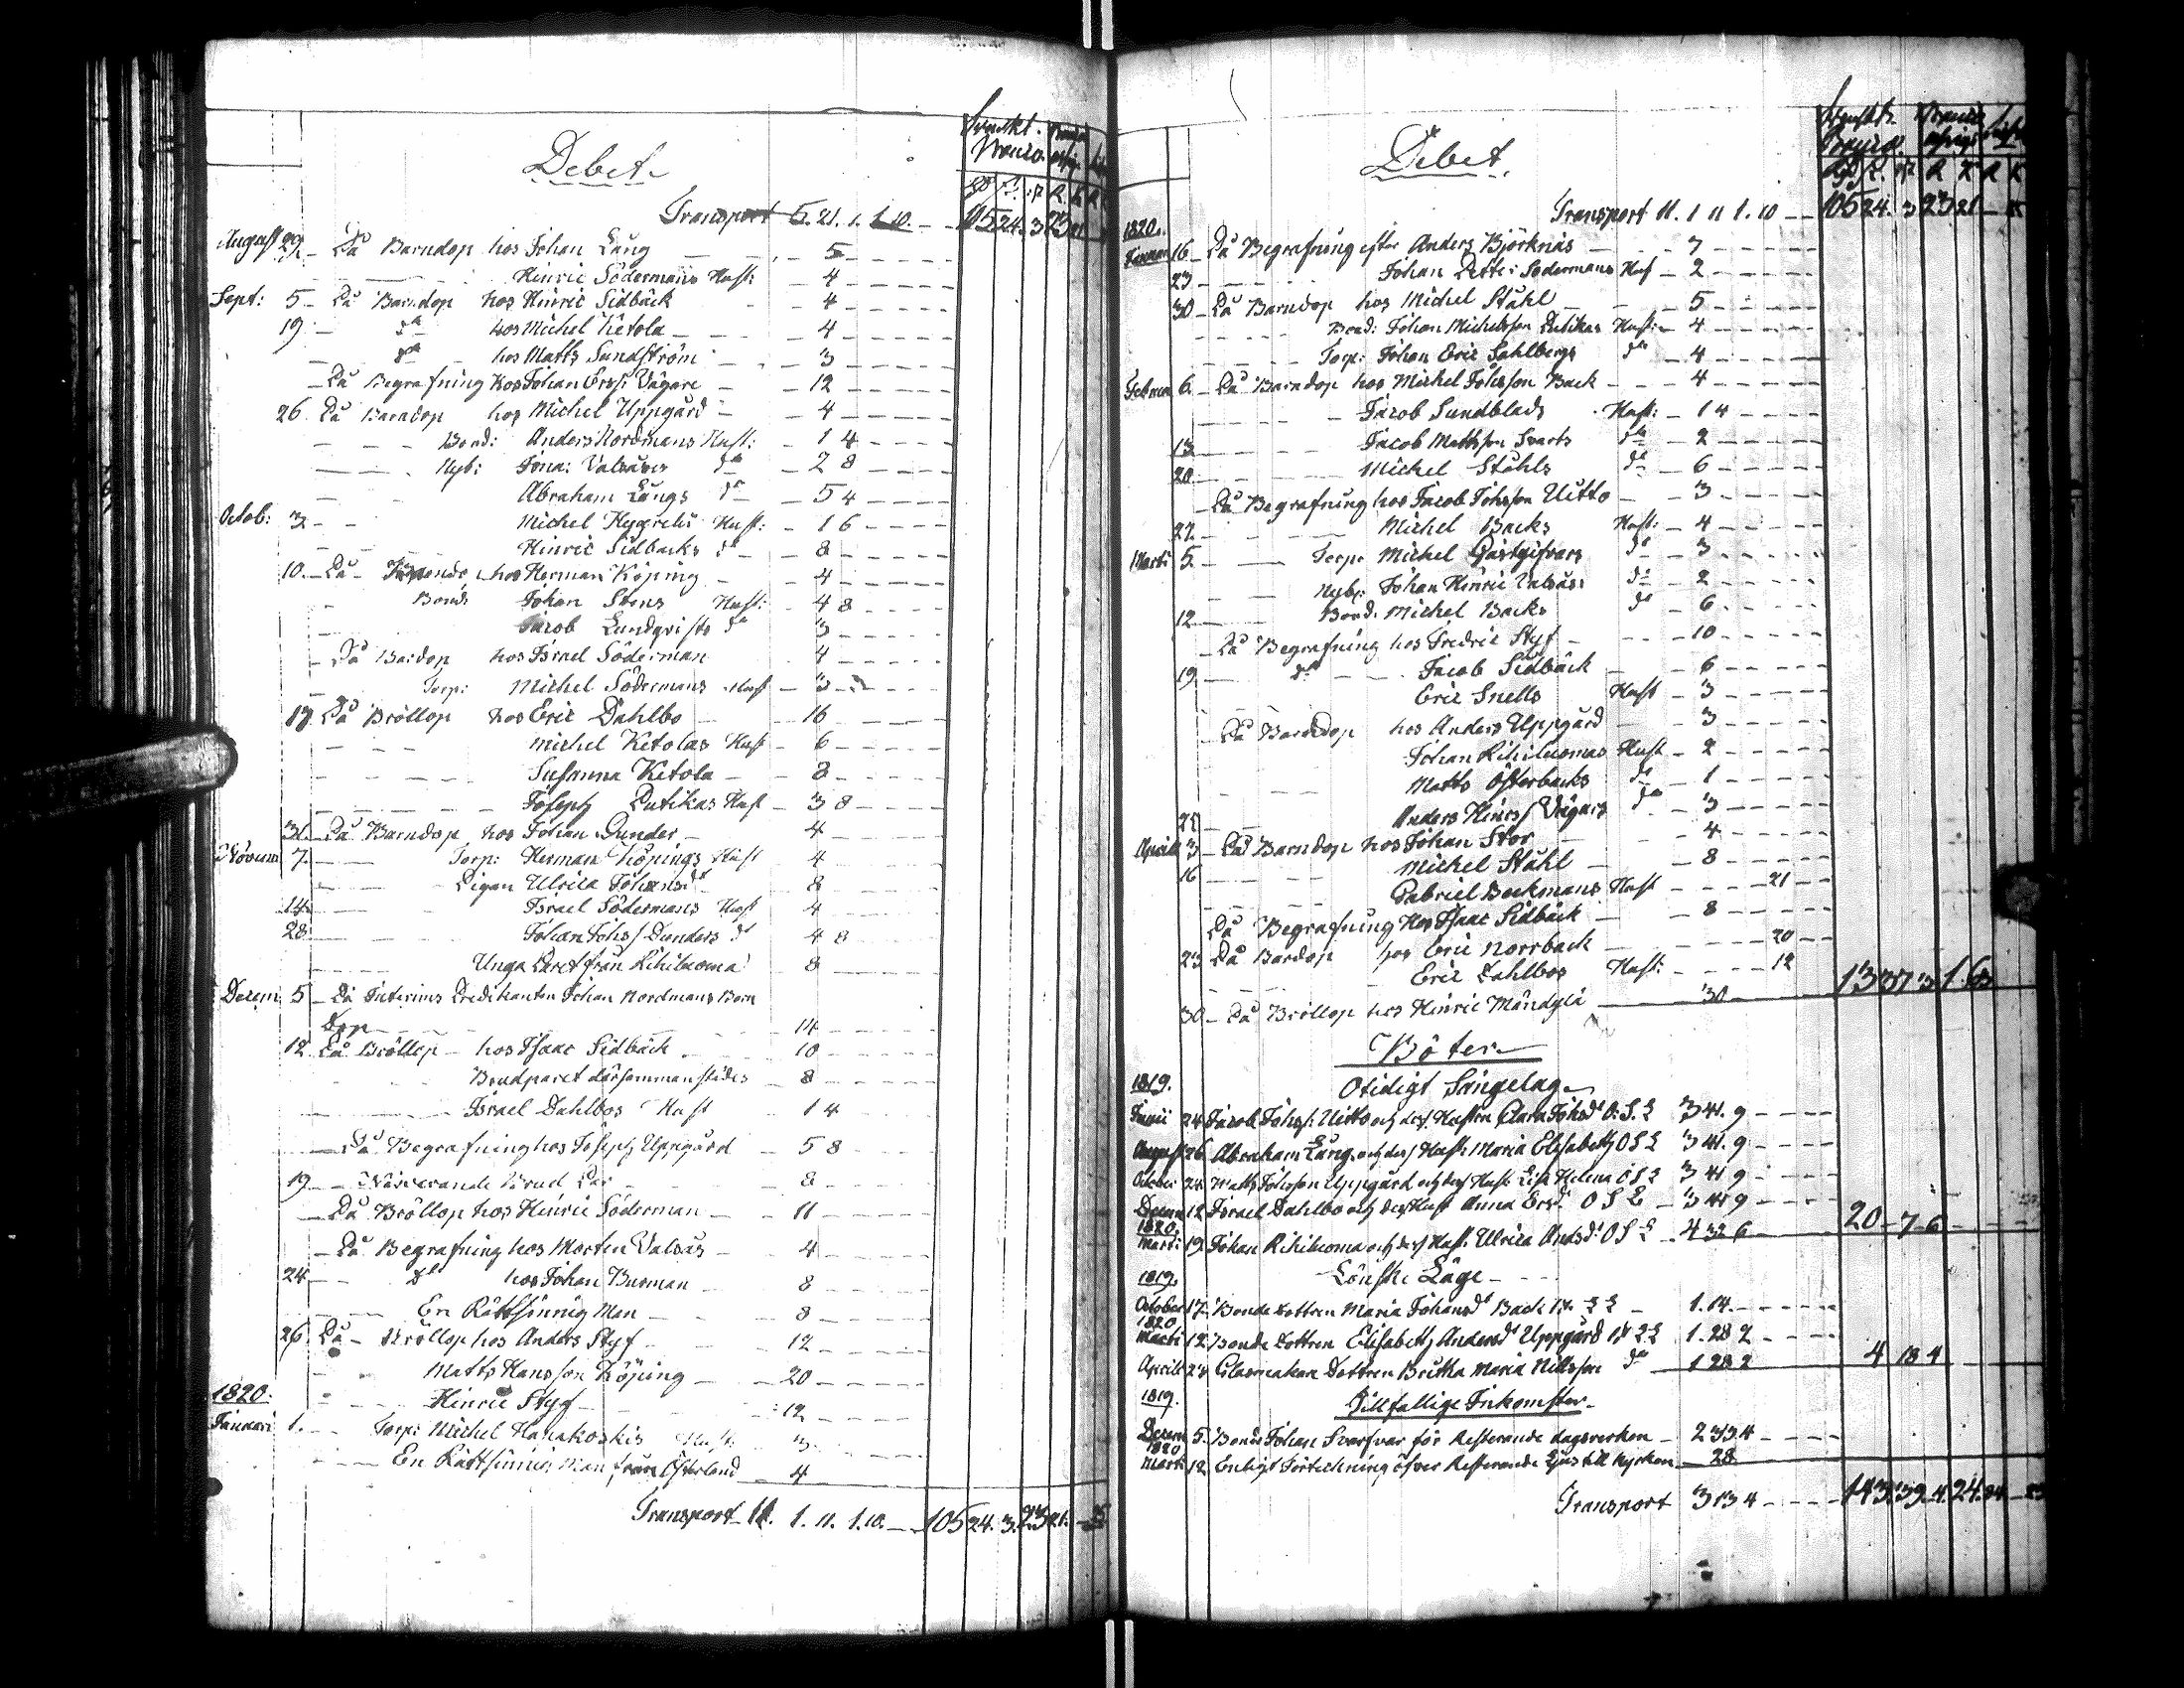 Debet
Svenskt
Banco
Transport 5. 21. 1. 1. 10. 105 24. 3 23 21
August 29 På Barndop hos Johan Lång 5
Hinric Södermans Hust: 4
Sept: 5 På Barndop hos Hinric Sidbäck 4
19 do hos Michel Ketola 4
do hos Matts Sundström 3
På Begrafning hos Johan Erss: Vägare 12
26 På Barndop hos Michel Uppgård 4
Bond: Anders Nordmans Hust: 1 4
Nyb: Jona: Valsäses do 2 8
Abraham Långs do 5 4
Octob: 3 Michel Hust: 1 6
Hinric Sidbacks do 8
10. På hos Herman Köping 4
Bond: Johan Stens Hust: 4 8
Jacob Lundqvists do 3
På Bardop hos Israel Söderman 4
Torp: Michel Södermans Hust 3
17 På Bröllop hos Eric Dahlbo 16
Michel Ketolas Hust 6
Susanna Ketola 8
Joseph Putikas Hust 3 8
31. På Barndop hos Johan Dunder 4
Novem 7 Torp: Herman Köpings Hust 4
Pigan Ulrica Johansdr 8
14 Israel Södermans Hust 4
28 Johan Johs/ Dunders do 4 8
Unga Paret från Rihiluoma 8
Decem 5 På Interims Predikanten Johan Nordmans Barn
Dop 14
12 På Bröllop hos Isaac Sidbäck 10
Brudparet därsammanstädes 8
Israel Dahlbos Hust 1 4
På Begrafning hos Joseph Uppgård 5 8
19 Närvarande Brud Par 8
På Bröllop hos Hinric Söderman 11
På Begrafning hos Morten Valsäs 4
24 do hos Johan Burman 8
En Rättsinnig Man 8
26 På Bröllop hos Anders Styf 12
Matts Hansson Köping 20
1820. Hinric Styf 12
Januari 1. Torp: Michel Hanakoskis Hust: 3
En Rättsinnig Man från Österland 4
Transport 11. 1. 11. 1. 10. 105 24. 3. 23 21.
Debet.
Transport 11. 1 11 1. 10 105 24. 3 23 21
1820.
Januar 16 På Begrafning efter Anders Björknäs 7
23 Johan Petter Södermans Hust 2
30 På Barndop hos Michel Ståhl 5
Bond: Johan Michelsson Putikas Hust: 4
Torp: Johan Eric Sahlbergs do 4
Februar 6. På Barndop hos Michel Johsson Back 4
Jacob Sundblads Hust: 1 4
13 Jacob Mattsson Svarts do 2
20 Michel Ståhls do 6
På Begrafning hos Jacob Johsson Uitto 3
27 Michel Backs Hust: 4
Marti 5. Torp: Michel Gästgifvars do 3
Nyb: Johan Hinric Valsäs: do 2
12 Bond: Michel Backs do 6
På Begrafning hos Fredric Styf 10
19 do Jacob Sidbäck 6
Eric Snells Hust 3
På Barndop hos Anders Uppgård 3
Johan Rihiluomas Hust 2
Matts Österbacks do 1
Anders Hinrs/ Vägars do 3
Aprill 3 På Barndop hos Johan Stor 4
16 Michel Ståhl 8
Gabriel Beckmans Hust 21
På Begrafning hos Isaac Sidbäck 8
23 På Bardop hos Eric Norrback 20
Eric Dahlbos Hust: 12
30 På Bröllop hos Hinric Mändylä 30 13 37 3 1. 63
Böter
1819. Otidigt Sängelag
Junii 24 Jacob Johss: Uitto och dess Hustru Clara Johsdr O. S. L 3 41. 9
August 26 Abraham Lång och dess Hust: Maria Elisabeth O S L 3 41. 9
October 24 Matts Johsson Uppgård och dess Hust: Lisa Helena O S L 3 41 9
Decem 12 Israel Dahlbo och dess Hust Anna Ersdr O S L 3 41 9
1820.
Marti 19 Johan Rihiluoma och dess Hust: Ulrica Andsdr O S L 4 32 6 20 7 6
1819. Lönska Läge
October 17 Bonde Dottren Maria Johansdr Back L L 1. 14.
1820
Marti 12 Bonde Dottren Elisabeth Andersdr Uppgård L L 1. 28 2
Aprill 23 Glasmakare Dottren Britha Maria Nillsson do 1 28 2 4 18 4
1819. Tillfällige Inkomster
Decem 5. Bonde Johan Svarfvar för Resterande dagsverken 2 33 4
1820
Marti 12 Enligt Förteckning öfver Resterande Ljus till Kyrkan 28
Transport 3 13 4 143. 39. 4. 24. 84